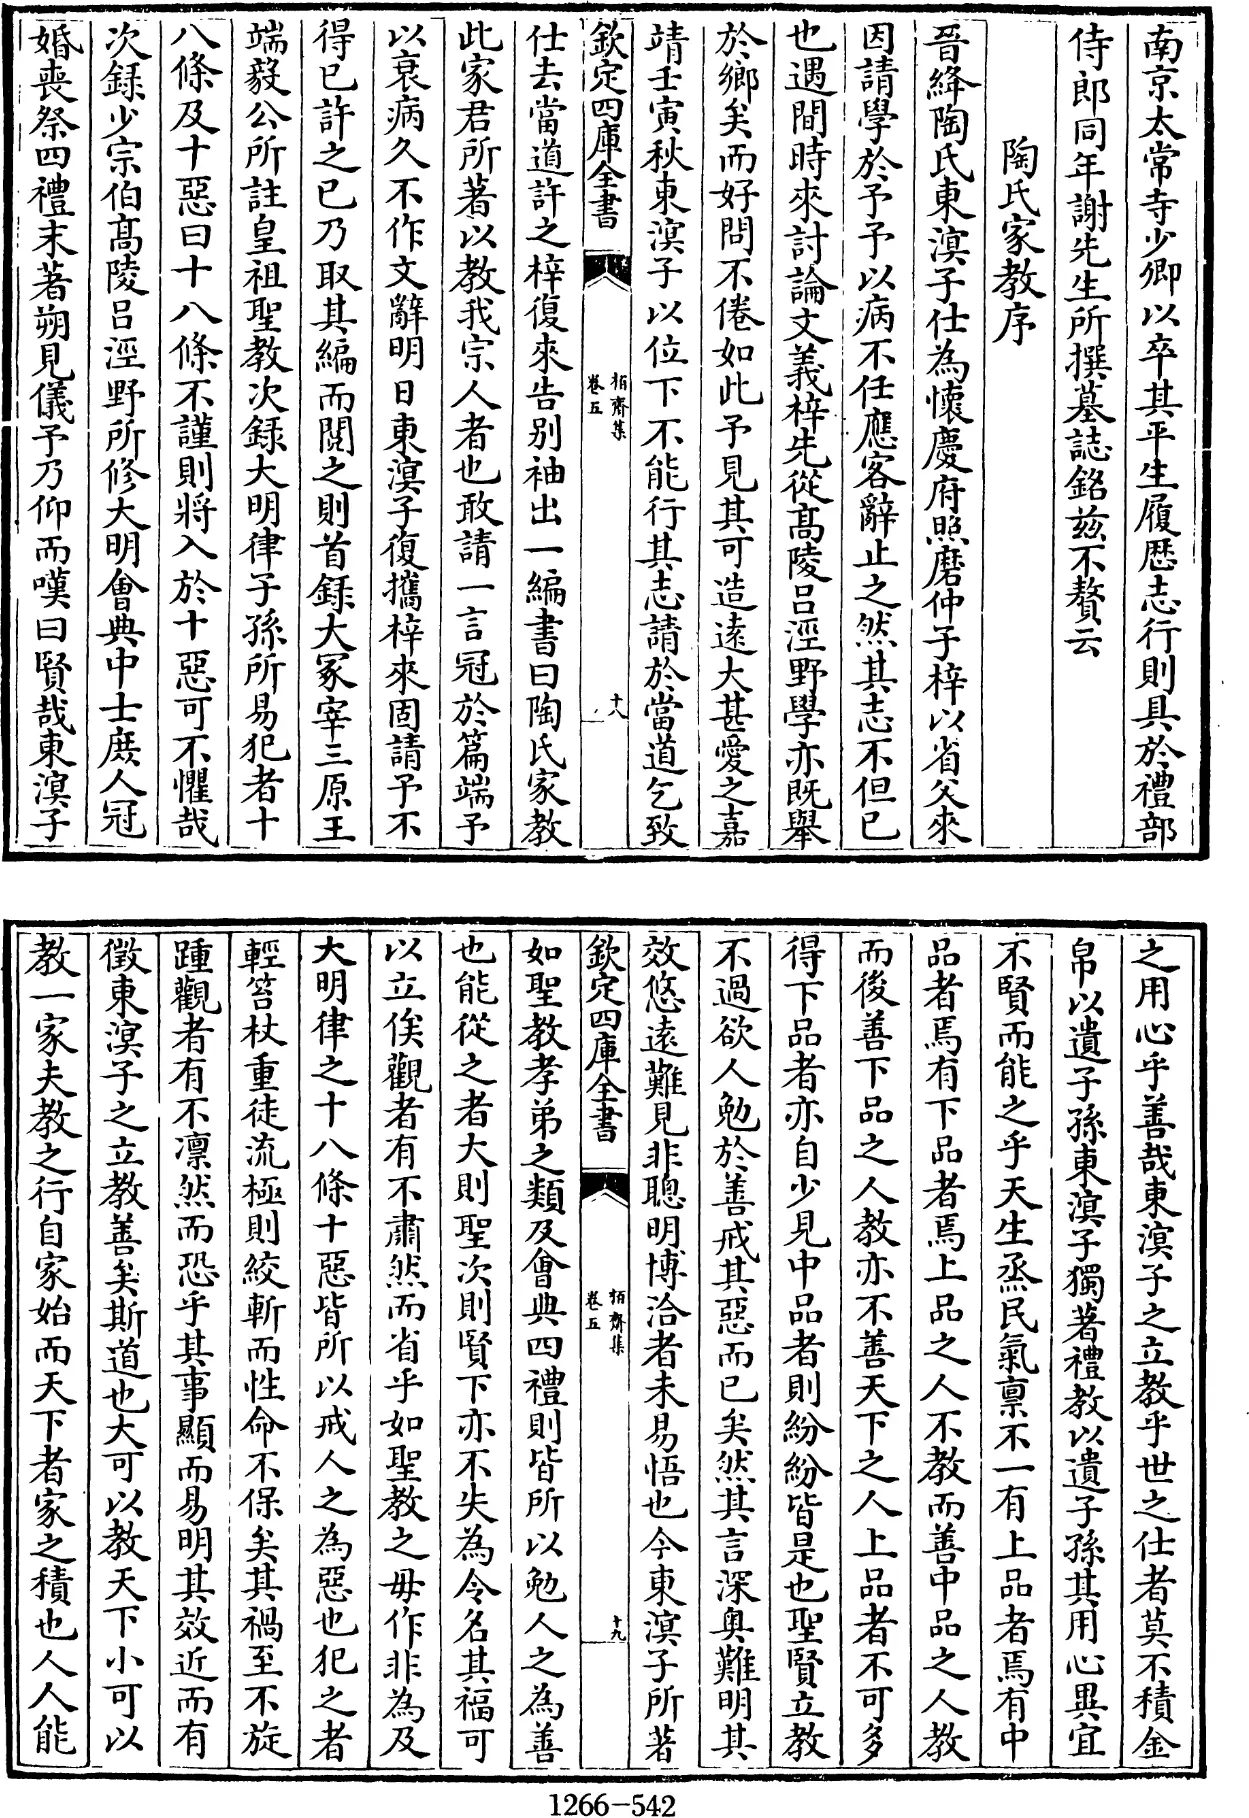 南京太常寺少卿以卒其平生履歴志行則具於禮部
侍郎同年謝先生所撰墓誌銘兹不贅云
陶氏家教序
晉絳陶氏東溟子仕為懷慶府照磨仲子梓以省父來
因請學於予予以病不任應客辭止之然其志不但已
也遇間時來討論文義梓先從髙陵吕涇野學亦既舉
於鄉矣而好問不倦如此予見其可造遠大甚愛之嘉
靖壬寅秋東溟子以位下不能行其志請於當道乞致
欽定四庫全書
栢齋集
卷五
十八
仕去當道許之梓復來告别袖出一編書曰陶氏家教
此家君所著以教我宗人者也敢請一言冠於篇端予
以衰病久不作文辭明日東溟子復攜梓來固請予不
得已許之已乃取其編而閱之則首録大冢宰三原王
端毅公所註皇祖聖教次録大明律子孫所易犯者十
八條及十惡曰十八條不謹則將入於十惡可不懼哉
次録少宗伯髙陵吕涇野所修大明會典中士庶人冠
婚喪祭四禮末著朔見儀予乃仰而嘆曰賢哉東溟子
之用心乎善哉東溟子之立教乎世之仕者莫不積金
帛以遺子孫東溟子獨著禮教以遺子孫其用心異宜
不賢而能之乎天生烝民氣禀不一有上品者焉有中
品者焉有下品者焉上品之人不教而善中品之人教
而後善下品之人教亦不善天下之人上品者不可多
得下品者亦自少見中品者則紛紛皆是也聖賢立教
不過欲人勉於善戒其惡而已矣然其言深奥難明其
效悠遠難見非聰明博洽者未易悟也今東溟子所著
欽定四庫全書
栢齋集
卷五
十九
如聖教孝弟之類及會典四禮則皆所以勉人之為善
也能從之者大則聖次則賢下亦不失為令名其福可
以立俟觀者有不肅然而省乎如聖教之毋作非為及
大明律之十八條十惡皆所以戒人之為惡也犯之者
輕笞杖重徒流極則絞斬而性命不保矣其禍至不旋
踵觀者有不凛然而恐乎其事顯而易明其效近而有
徵東溟子之立教善矣斯道也大可以教天下小可以
教一家夫教之行自家始而天下者家之積也人人能
1266-542